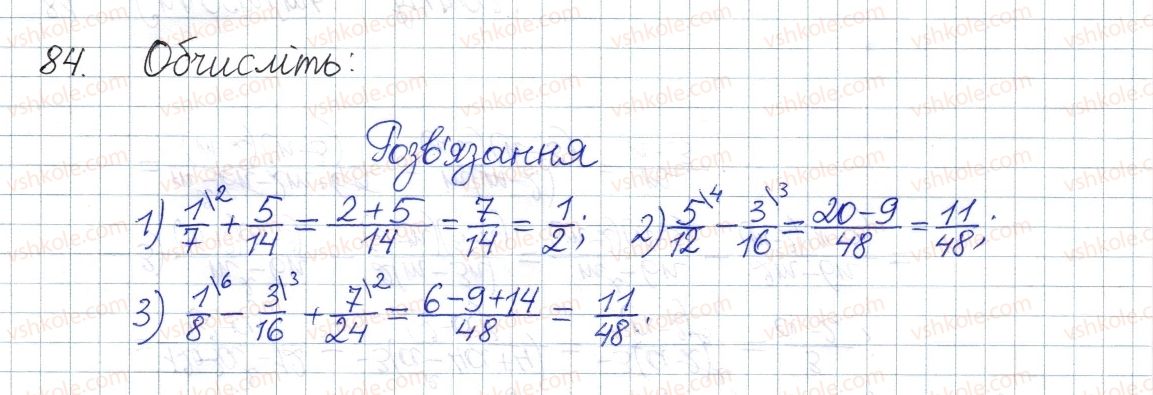 84. Обчисліть:
Розв'язання
1) 1/7\2 + 5/14 = (2+5)/14 = 7/14 = 1/2; 2) 5/12\4 − 3/16\3 = (20−9)/48 = 11/48;
3) 1/8\6 − 3/16\3 + 7/24\2 = (6−9+14)/48 = 11/48.
vshkole.com